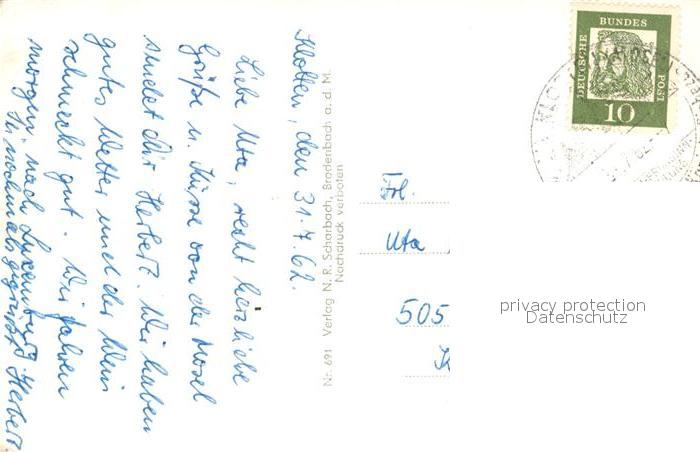 Klotten, den 31.7.62.
Liebe Uta, recht herzliche
Grüße u. Küsse von der Mosel
sendet Dir Herbert. Wir haben
gutes Wetter und der Wein
schmeckt gut. Wir fahren
morgen nach Luxemburg.
nochmals gegrüßt Herbert
Nr. 691 Verlag N. R. Scharbach, Brodenbach a. d. M.
Nachdruck verboten
Frl.
Uta
505
DEUTSCHE
BUNDES
POST
10
privacy protection
Datenschutz